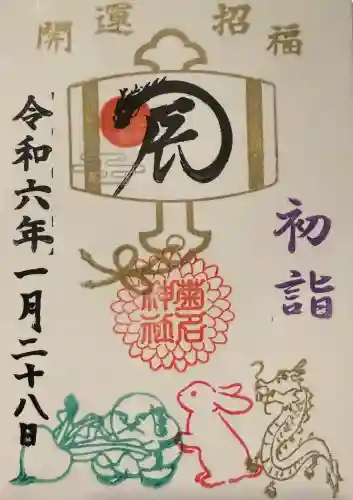 開運招福
辰
初詣
菊石神社
令和六年一月二十八日